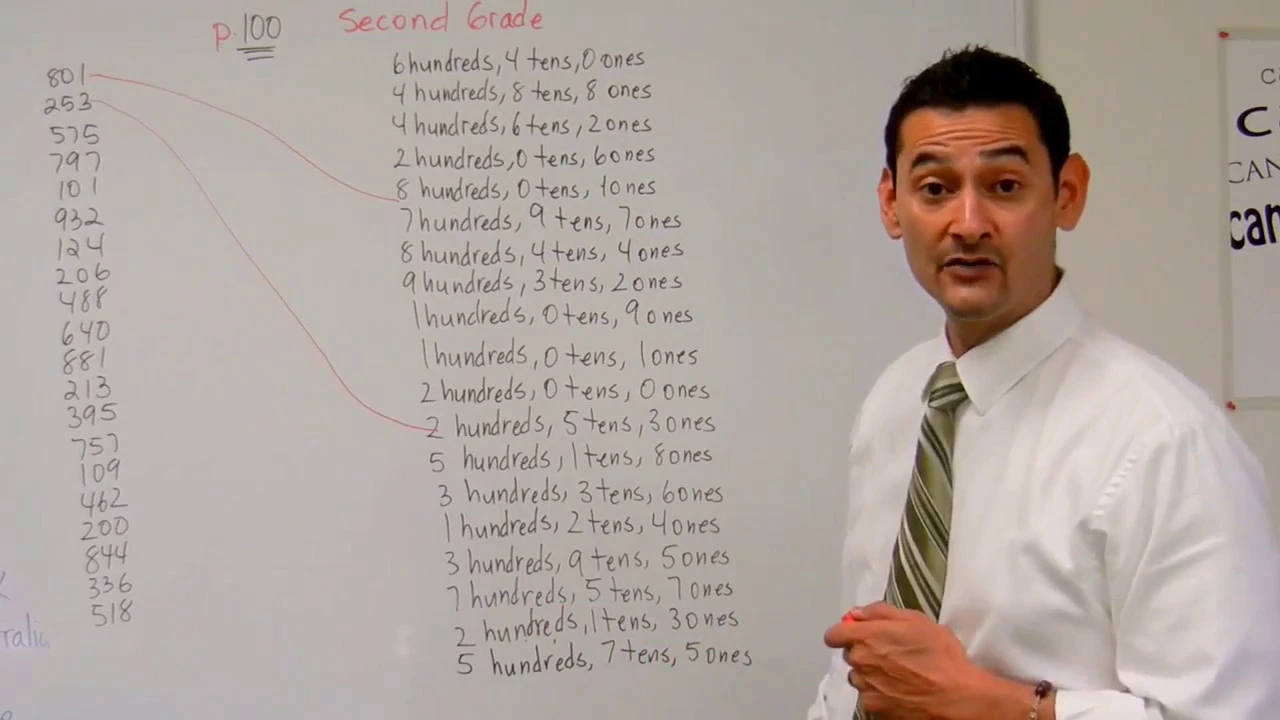 p.100 Second Grade
801
253
575
797
101
932
124
206
488
640
881
213
395
757
109
462
200
844
336
518
6 hundreds, 4 tens, 0 ones
4 hundreds, 8 tens, 8 ones
4 hundreds, 6 tens, 2 ones
2 hundreds, 0 tens, 6 ones
8 hundreds, 0 tens, 1 ones
7 hundreds, 9 tens, 7 ones
8 hundreds, 4 tens, 4 ones
9 hundreds, 3 tens, 2 ones
1 hundreds, 0 tens, 9 ones
1 hundreds, 0 tens, 1 ones
2 hundreds, 0 tens, 0 ones
2 hundreds, 5 tens, 3 ones
5 hundreds, 1 tens, 8 ones
3 hundreds, 3 tens, 6 ones
1 hundreds, 2 tens, 4 ones
3 hundreds, 9 tens, 5 ones
7 hundreds, 5 tens, 7 ones
2 hundreds, 1 tens, 3 ones
5 hundreds, 7 tens, 5 ones